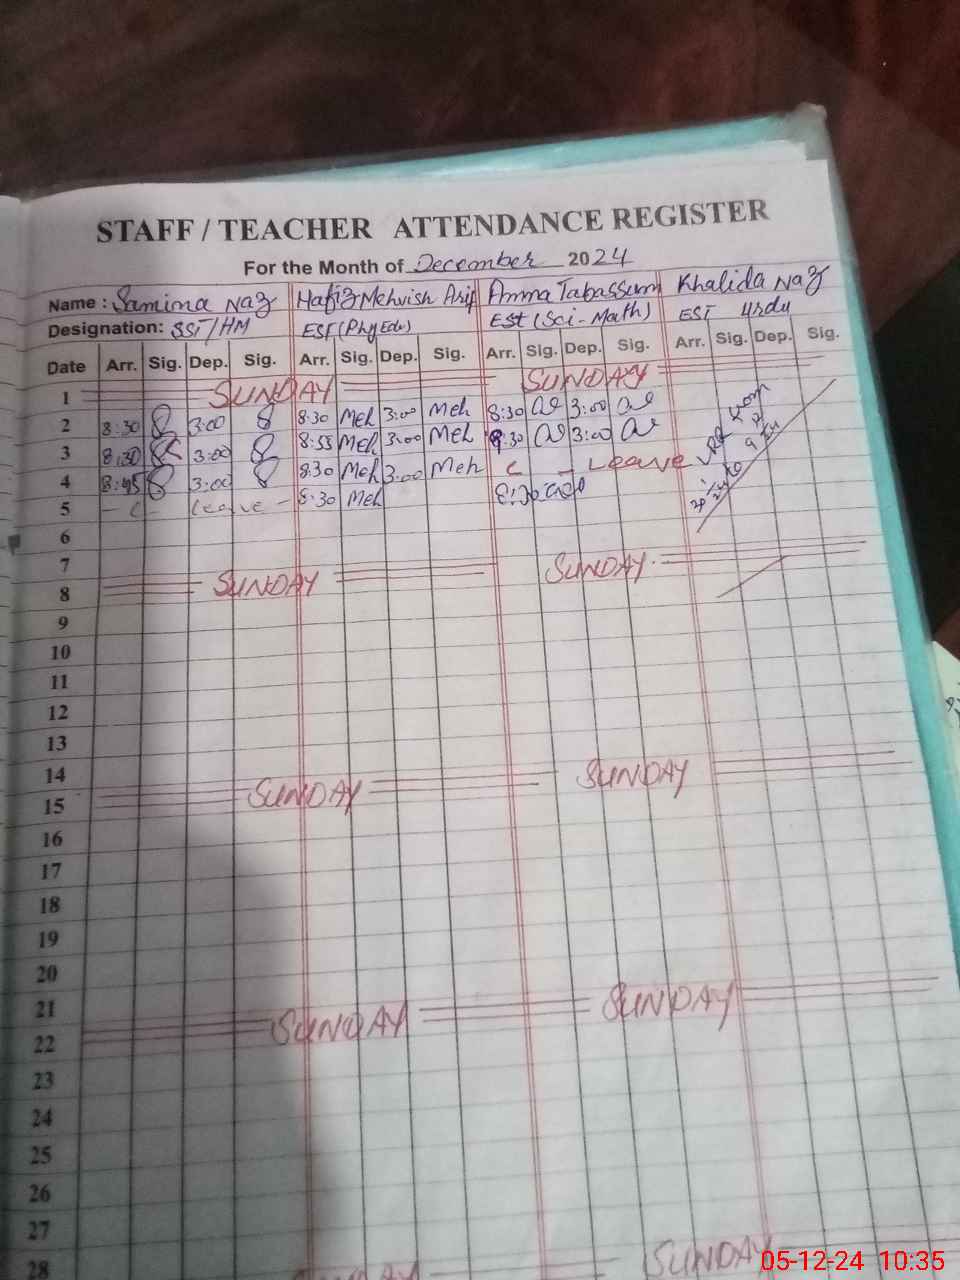 STAFF / TEACHER ATTENDANCE REGISTER
For the Month of December 2024
Name : Samina Naz Hafiz Mehvish Arif Amna Tabassum Khalida Naz
Designation: SST/HM EST (Phy Edu) Est (Sci-Math) EST Urdu
Date Arr. Sig. Dep. Sig. Arr. Sig. Dep. Sig. Arr. Sig. Dep. Sig. Arr. Sig. Dep. Sig.
1 SUNDAY SUNDAY
2 8:30 3:00 8:30 Meh 3:00 Meh 8:30 3:00
3 8:30 3:00 8:55 Meh 3:00 Meh 3:00
4 8:45 3:00 8:30 Meh 3:00 Meh Leave
5 Leave 8:30 Meh 8:30
6
7
8 SUNDAY SUNDAY
9
10
11
12
13
14
15 SUNDAY SUNDAY
16
17
18
19
20
21
22 SUNDAY SUNDAY
23
24
25
26
27
28 SUNDAY SUNDAY
05-12-24 10:35